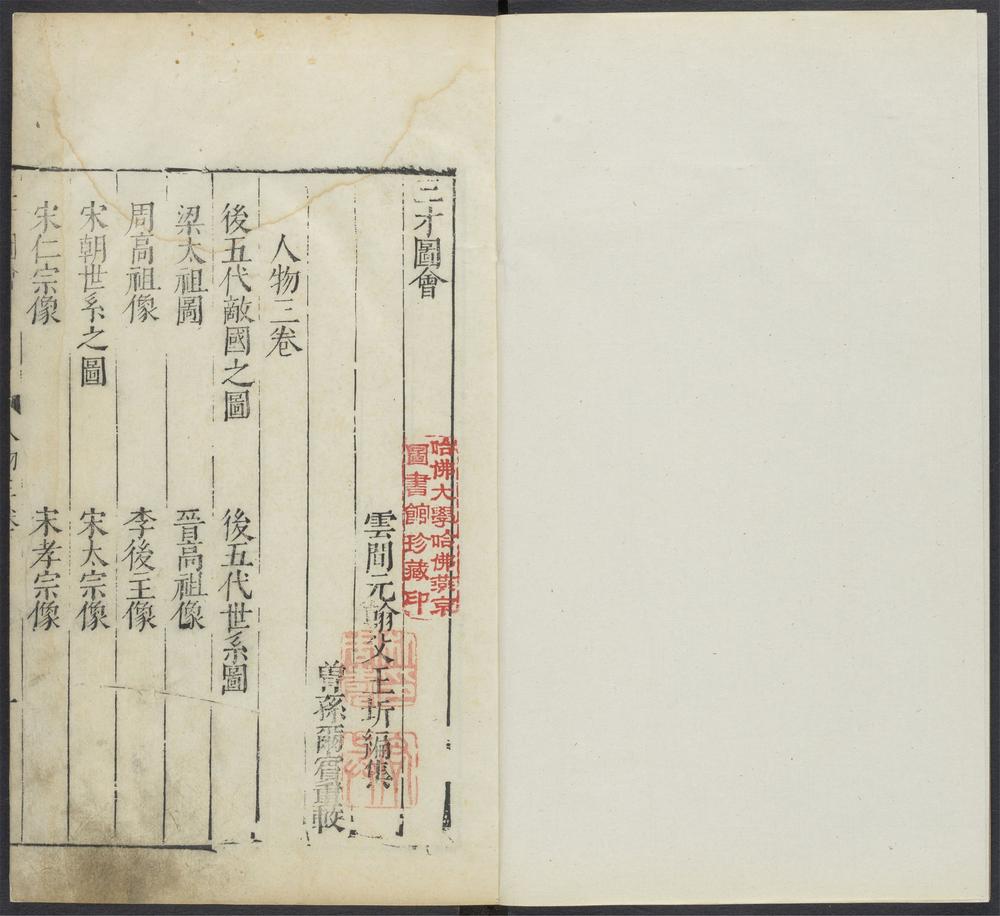 三才圖會
雲間元翰父王圻編集
曾孫爾賓重較
人物三卷
後五代敵國之圖 後五代世系圖
梁太祖圖 晉高祖像
周高祖像 李後主像
宋朝世系之圖 宋太宗像
宋仁宗像 宋孝宗像
哈佛大學哈佛燕京
圖書館珍藏印